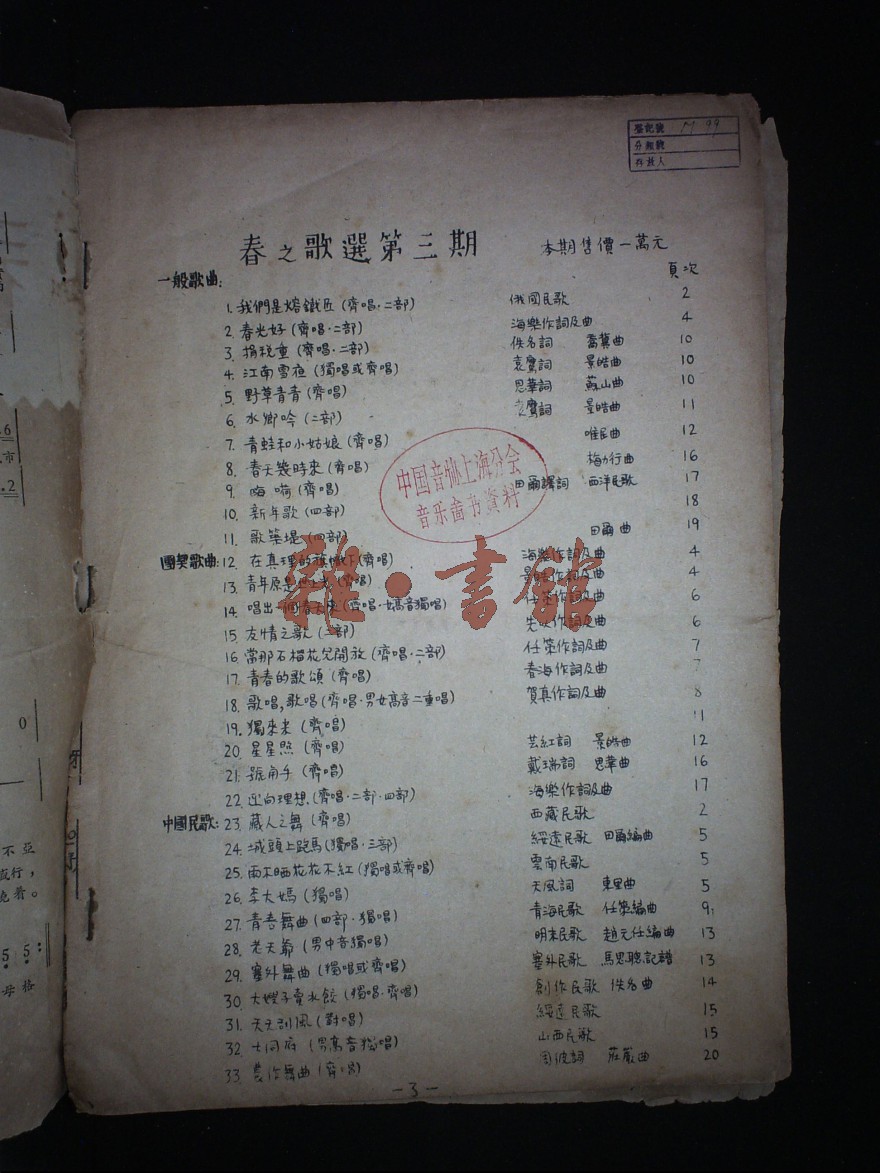 登記號 M 99
分類號
存放人
春之歌選第三期 本期售價一萬元
頁次
一般歌曲:
1. 我們是熔鐵匠 (齊唱·二部) 俄國民歌 2
2. 春光好 (齊唱·二部) 海樂作詞及曲 4
3. 捐稅重 (齊唱·二部) 佚名詞 喬冀曲 10
4. 江南雪夜 (獨唱或齊唱) 袁鷹詞 景皓曲 10
5. 野草青青 (齊唱) 思華詞 蘇山曲 10
6. 水鄉吟 (二部) 鷹詞 景皓曲 11
7. 青蛙和小姑娘 (齊唱) 唯民曲 12
8. 春天幾時來 (齊唱) 梅力行曲 16
9. 嗨嗬 (齊唱) 田爾譯詞 西洋民歌 17
10. 新年歌 (四部) 18
11. 歌築堤 (四部) 田爾曲 19
團契歌曲: 12. 在真理的旗幟下 (齊唱) 海樂作詞及曲 4
13. 青年原是 (齊唱) 作詞及曲 4
14. 唱出一個春天來 (齊唱·女高音獨唱) 任策作詞及曲 6
15. 友情之歌 (二部) 作詞及曲 6
16. 當那石榴花兒開放 (齊唱·二部) 任策作詞及曲 7
17. 青春的歌頌 (齊唱) 春海作詞及曲 7
18. 歌唱,歌唱 (齊唱·男女高音二重唱) 賀真作詞及曲 8
19. 獨來米 (齊唱) 11
20. 星星照 (齊唱) 芸紅詞 景皓曲 12
21. 號角手 (齊唱) 戴瑞詞 思華曲 16
22. 迎向理想 (齊唱·二部·四部) 海樂作詞及曲 17
中國民歌: 23. 藏人之舞 (齊唱) 西藏民歌 2
24. 城頭上跑馬 (獨唱·三部) 綏遠民歌 田爾編曲 5
25. 雨不晒花花不紅 (獨唱或齊唱) 雲南民歌 5
26. 李大媽 (獨唱) 天風詞 東里曲 5
27. 青春舞曲 (四部·獨唱) 青海民歌 任策編曲 9
28. 老天爺 (男中音獨唱) 明末民歌 趙元任編曲 13
29. 塞外舞曲 (獨唱或齊唱) 塞外民歌 馬思聰記譜 13
30. 大嫂子賣水餃 (獨唱·齊唱) 創作民歌 佚名曲 14
31. 天天刮風 (對唱) 綏遠民歌 15
32. 大同府 (男高音獨唱) 山西民歌 15
33. 農作舞曲 (齊唱) 周波詞 莊嚴曲 20
中国音协上海分会
音乐图书資料
雜·書館
— 3 —